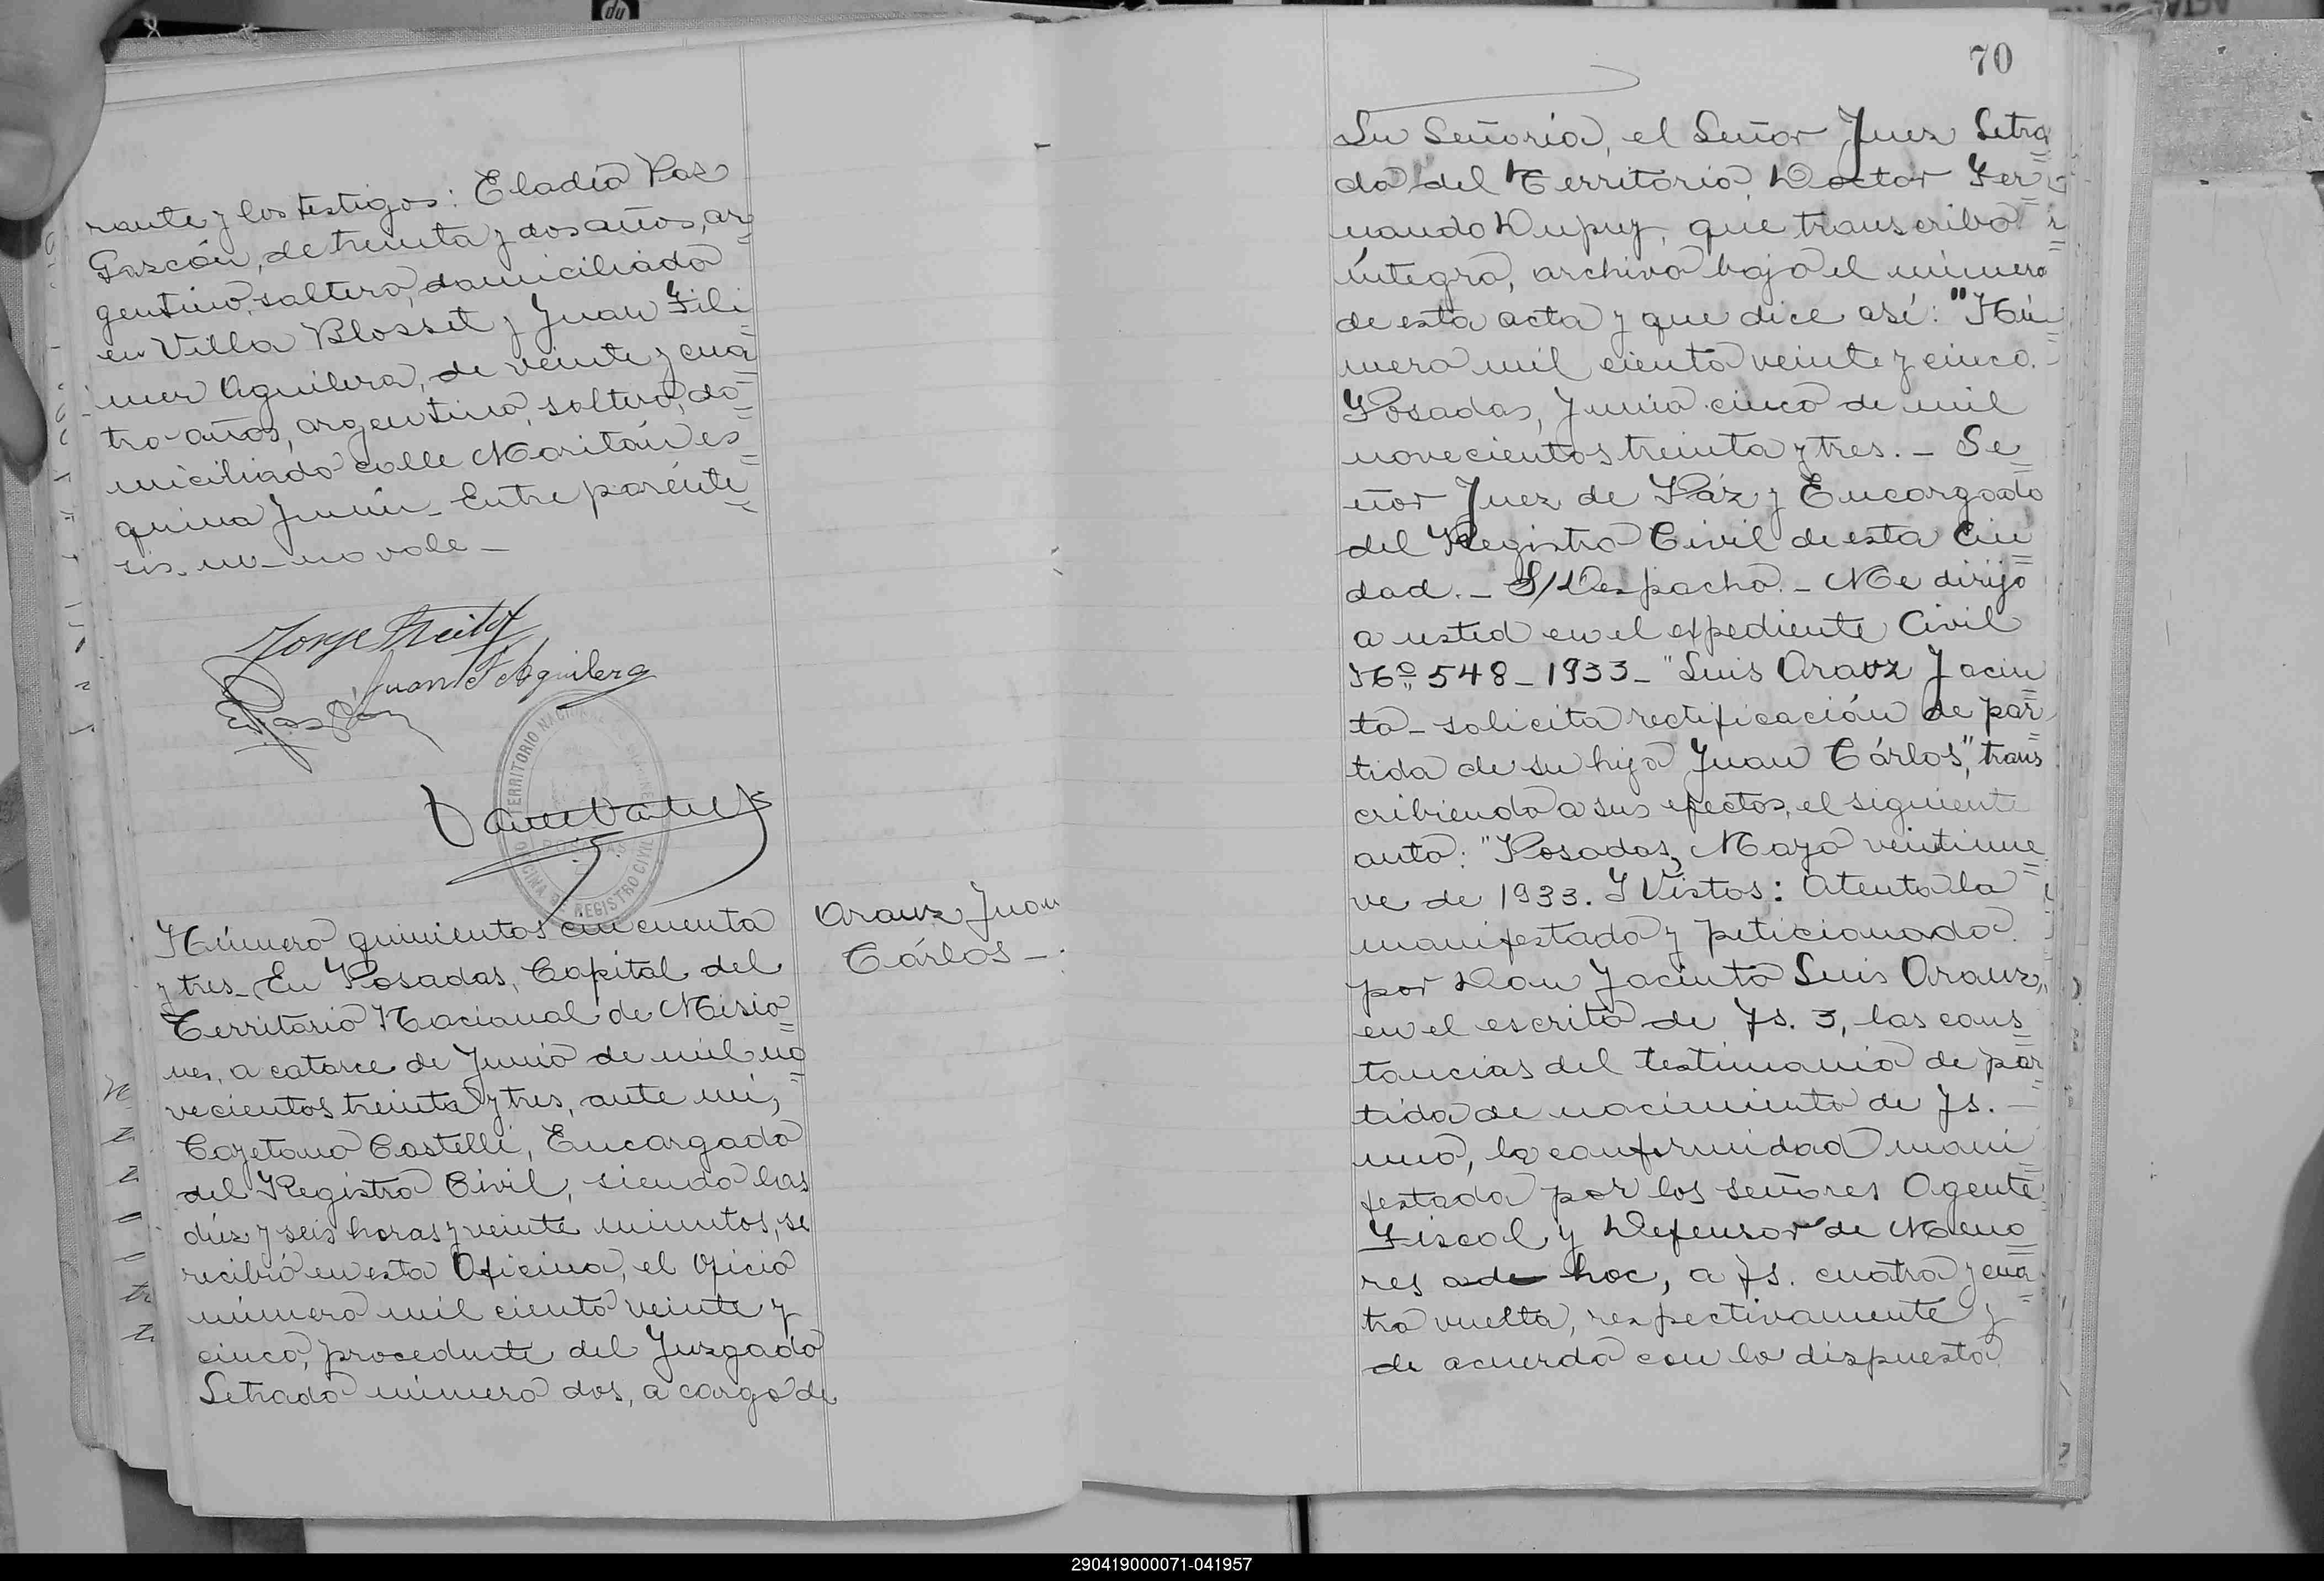 rante y los testigos: Eladio Pas
Gascón, de treinta y dos años, ar
gentino, soltero, domiciliado
en Villa Blosset y Juan Fili
mer Aguilera, de veinte y cua
tro años, argentino, soltero, do
miciliado calle Maritán es
quina Junín_ Entre parénte
sis. un_ no vale_
Jorge
Juan F Aguilera
TERRITORIO NACIONAL DE MISIONES
POSADAS
OFICINA DE REGISTRO CIVIL
Número quinientos cincuenta
y tres_ En Posadas, Capital del
Territorio Nacional de Misio
nes, a catorce de Junio de mil no
vecientos treinta y tres, ante mi,
Cayetano Castelli, Encargado
del Registro Civil, siendo las
diez y seis horas y veinte minutos, se
recibió en esta Oficina, el oficio
número mil ciento veinte y
cinco, procedente del Juzgado
Letrado número dos, a cargo de
Arauz Juan
Cárlos_
70
Su Señoria, el Señor Juez Letra
do del Territorio Doctor Fer
nando Dupuy, que transcribo
íntegro, archivo bajo el número
de esta acta y que dice así: "Nú
mero mil ciento veinte y cinco.
Posadas, Junio cinco de mil
novecientos treinta y tres._ Se
ñor Juez de Páz y Encargado
del Registro Civil de esta Ciu
dad._ S/Despacho._ Me dirijo
a usted en el expediente Civil
Nº 548_1933_ "Luis Arauz Jacin
to_ solicita rectificación de par
tida de su hijo Juan Cárlos", trans
cribiendo a sus efectos, el siguiente
auto: "Posadas, Mayo veintinue
ve de 1933. Y Vistos: Atento lo
manifestado y peticionado
por Don Jacinto Luis Arauz,
en el escrito de fs. 3, las cons
tancias del testimonio de par
tida de nacimiento de fs. _
uno, la conformidad mani
festada por los señores Agente
Fiscal y Defensor de Meno
res ade hoc, a fs. cuatro y cua
tro vuelta, respectivamente y
de acuerdo con lo dispuesto
290419000071-041957